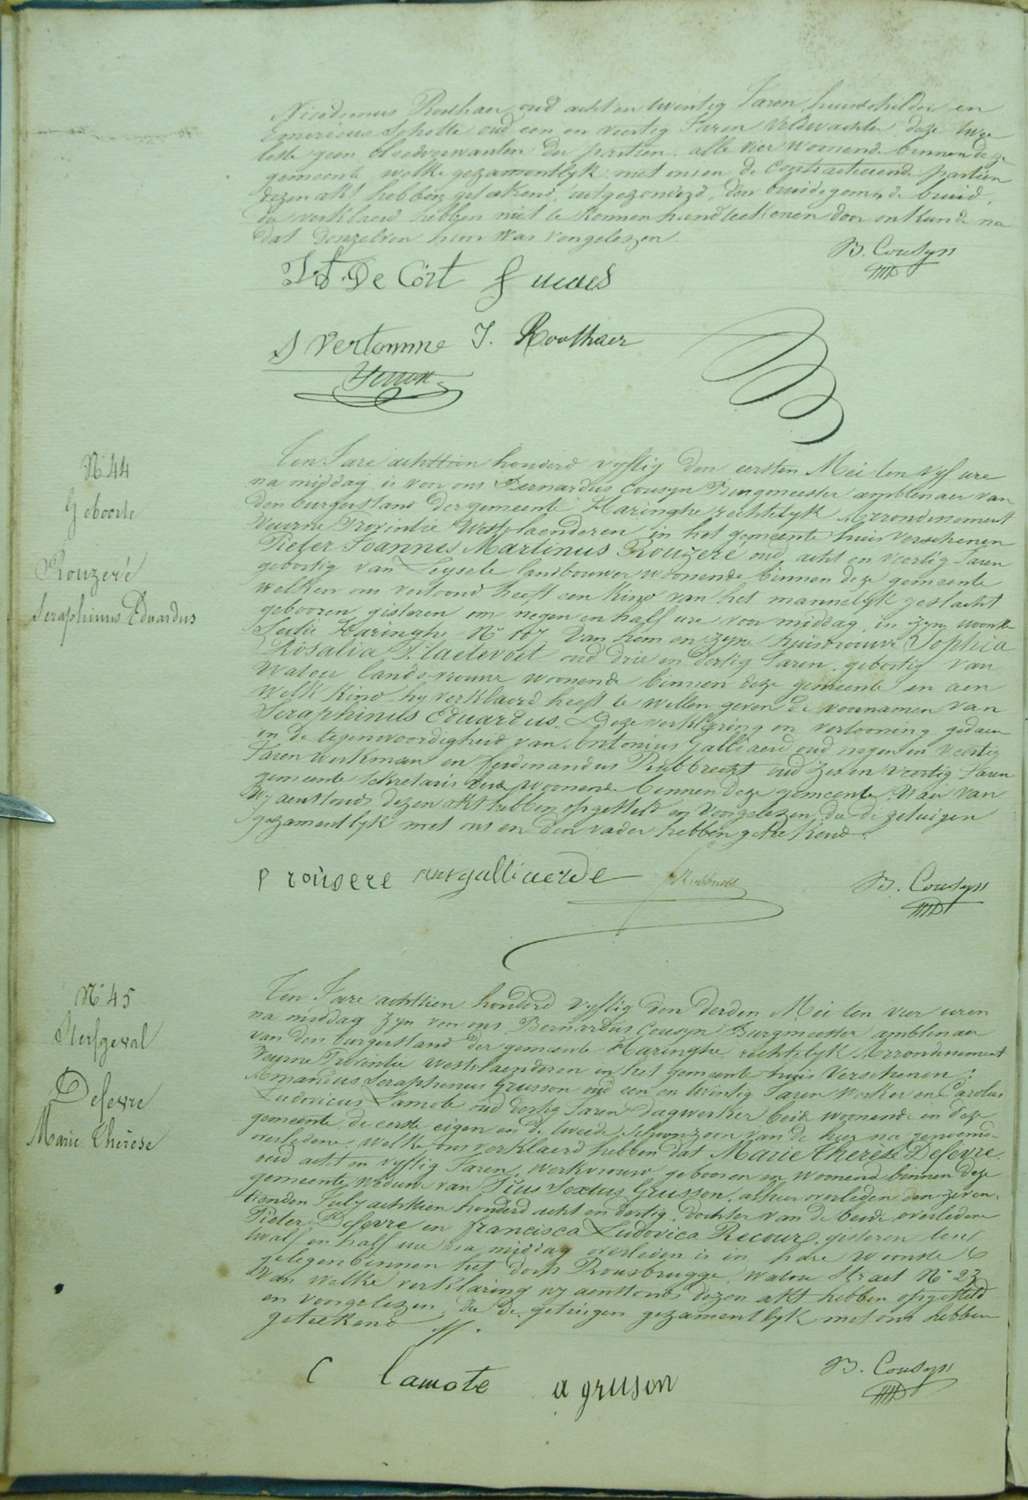 Nicodemus Roothaer oud acht en twintig Jaren huisschilder en
Schotte oud een en veertig Jaren veldwachter deze twee
leste geen bloedverwanten der partien, alle vier woonende binnen deze
gemeente welke gezamentlyk met ons en de contracteerende partien
dezen akt hebben geteekend, uitgezonderd den bruidegom en de bruid
die verklaerd hebben niet te konnen handteekenen door onkunde na
dat donzelven hun was voorgelezen
B. Cousyn
De Cort
S Vertomme J. Roothaer
N° 44
Geboorte
Rouzeré
Seraphinus Eduardus
Ten Jare achttien honderd vyftig den eersten Mei ten vyf ure
na middag is voor ons Bernardus Cousyn Burgmeester amblenaer van
den burgerstand der gemeente Haringhe rechtelyk Arrondissement
Veurne Provintie Westvlaenderen in het gemeente huis verschenen
Pieter Joannes Martinus Rouzere oud acht en veertig Jaren
geboortig van Leysele landbouwer woonende binnen deze gemeente
welken ons vertoond heeft een kind van het mannelyk geslacht
gebooren gisteren om negen en half ure voor middag in zyn woonste
Sectie Haringhe N° 167 van hem en zyne huisvrouwe Sophia
Rosalia oud drie en dertig Jaren geboortig van
Watou landsvrouwe woonende binnen deze gemeente en aen
welk kind hy verklaerd heeft te willen geven de voornamen van
Seraphinus Eduardus. Deze verklaring en vertooning gedaen
in de tegenwoordigheid van Antonius Galliaerd oud negen en veertig
Jaren werkman en Ferdinandus Rubbrecht oud zes en veertig Jaren
gemeente sekretaris beide woonende binnen deze gemeente. Waer van
wy aenstonds dezen akt hebben opgesteld en voorgelezen, die de getuigen
gezamentlyk met ons en den vader hebben geteekend.
P roüsere galliaerde Rubbrecht B. Cousyn
N° 45
Sterfgeval
Defevre
Marie Thérèse
Ten Jare achttien honderd vyftig den derden Mei ten vier uren
na middag zyn voor ons Bernardus Cousyn Burgmeester amblenaer
van den burgerstand der gemeente Haringhe rechtelyk Arrondissement
Veurne Provintie Westvlaenderen in het gemeente huis verschenen:
Amandus Seraphinus Gruson oud een en twintig Jaren werker en Carolus
Ludovicus Lamote oud dertig Jaren dagwerker beide woonende in deze
gemeente de eerste eigen en de tweede schoonzoon van de hier na genoemde
overledene, welke ons verklaerd hebben dat Marie Thérèse Defevre
oud acht en vyftig Jaren, werkvrouw gebooren en woonend binnen deze
gemeente weduwe van Pius Sextus Gruson, alhier overleden den zeven
vonden July achttien honderd acht en dertig, dochter van de beide overledene
Pieter Defevre en Francisca Ludovica Recour, gisteren leur
twalf en half ure na middag overleden is in hare woonste
gelegen binnen het dorp Rousbrugge, watou straet N° 23
Van welke verklaring wy aenstonds dezen akt hebben opgesteld
en voorgelezen, die de getuigen gezamentlyk met ons hebben
geteekend
C Lamote a gruson B. Cousyn